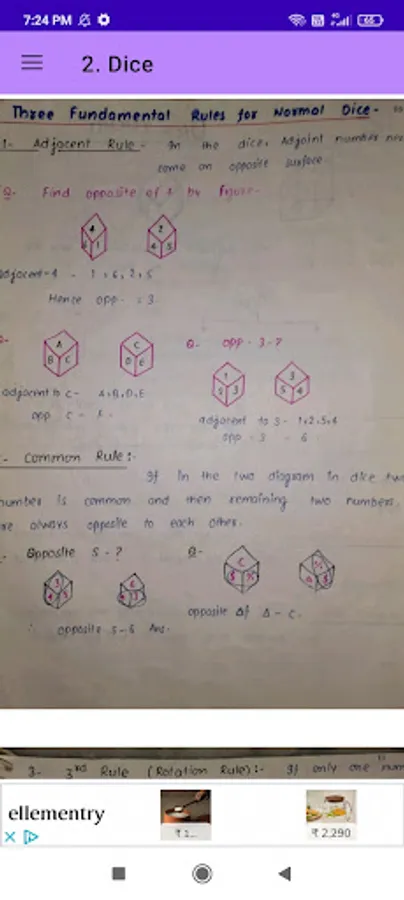 7:24 PM
65
2. Dice
Three Fundamental Rules for Normal Dice-
1- Adjacent Rule- In the dice, Adjoint number nev
come on opposite surface.
Q- Find opposite of 4 by figure-
4
6 1
2
4 5
adjacent-4 - 1,6,2,5
Hence opp - = 3
A
B C
C
D E
Q- opp - 3 - ?
1
2 3
3
5 4
adjacent to C- A,B,D,E
opp C - F.
adjacent to 3- 1,2,5,4
opp - 3 - 6
- Common Rule:-
If in the two diagram in dice two
number is common and then remaining two numbers.
re always opposite to each other.
- Opposite 5 - ?
Q-
C
opposite of Δ - C.
∴ opposite 5-6 Ans.
3- 3rd Rule (Rotation Rule):- If only one num
ellementry
₹ 1...
₹ 2,290